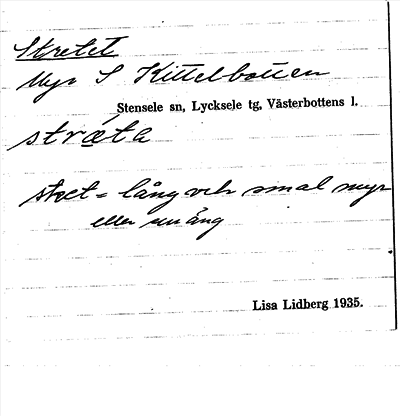 Stretet
Myr S Kittelbotten
Stensele sn, Lycksele tg, Västerbottens l.
stræta
stret = lång och smal myr
eller ång
Lisa Lidberg 1935.